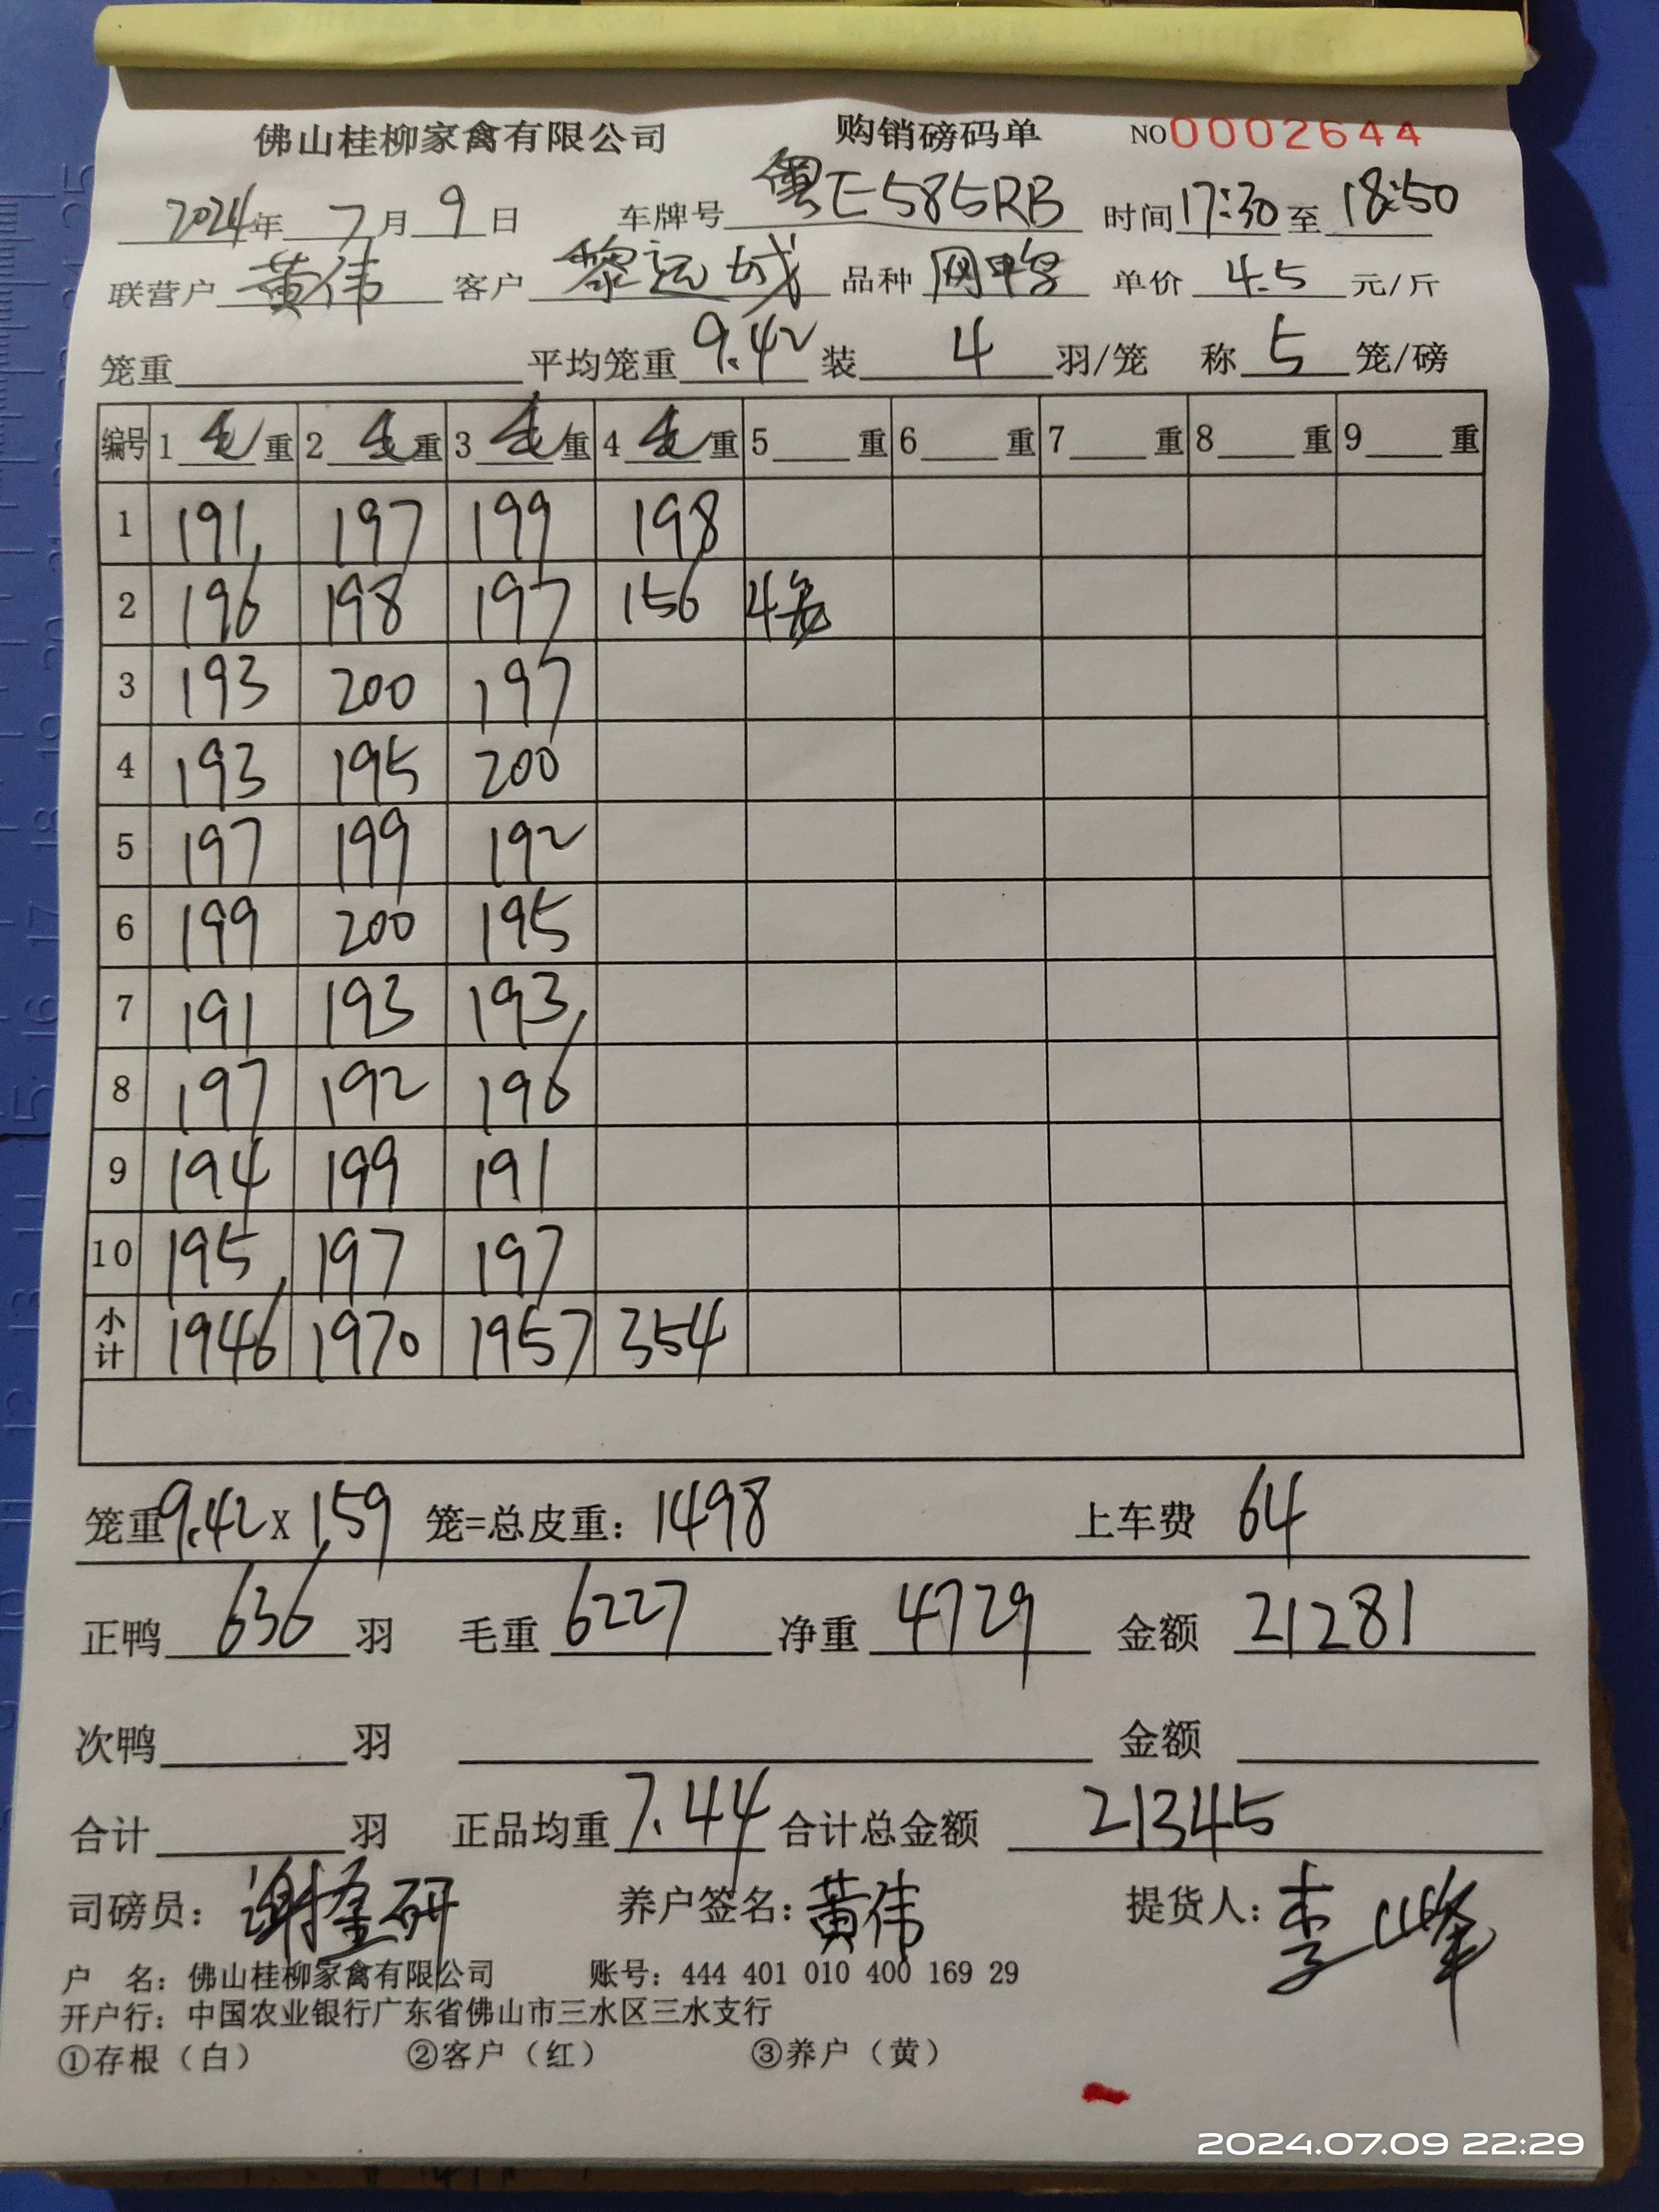 佛山桂柳家禽有限公司 购销磅码单 NO0002644
2024年7月9日 车牌号粤E585RB 时间17:30至18:50
联营户黄伟 客户黎运城 品种网鸭 单价4.5元/斤
笼重 平均笼重9.42装4羽/笼 称5笼/磅
编号 1毛重 2毛重 3毛重 4毛重 5重 6重 7重 8重 9重
1 191 197 199 198
2 196 198 197 156 4笼
3 193 200 197
4 193 195 200
5 197 199 192
6 199 200 195
7 191 193 193
8 197 192 196
9 194 199 191
10 195 197 197
小计 1946 1970 1957 354
笼重9.42x159 笼=总皮重：1498 上车费 64
正鸭636羽 毛重6227 净重4729 金额21281
次鸭 羽 金额
合计 羽 正品均重7.44 合计总金额21345
司磅员：谢 研 养户签名：黄伟 提货人：李峰
户 名：佛山桂柳家禽有限公司 账号：444 401 010 400 169 29
开户行：中国农业银行广东省佛山市三水区三水支行
①存根（白） ②客户（红） ③养户（黄）
2024.07.09 22:29